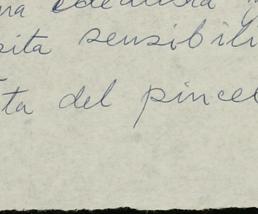 na
sita sensibili
ta del pincel